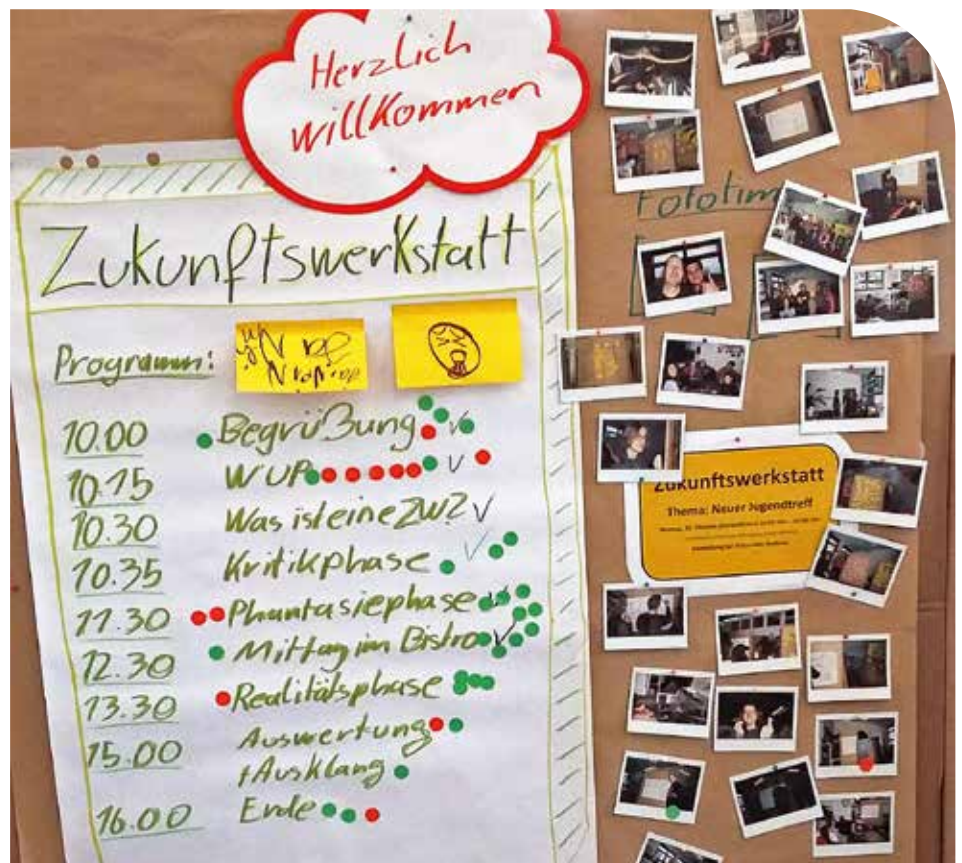 Herzlich
willkommen
Zukunftswerkstatt
Programm:
10.00 Begrüßung
10.15 WUP
10.30 Was ist eine ZW?
10.35 Kritikphase
11.30 Phantasiephase
12.30 Mittag im Bistro
13.30 Realitätsphase
15.00 Auswertung
+Ausklang
16.00 Ende
Fototim
Zukunftswerkstatt
Thema: Neuer Jugendtreff